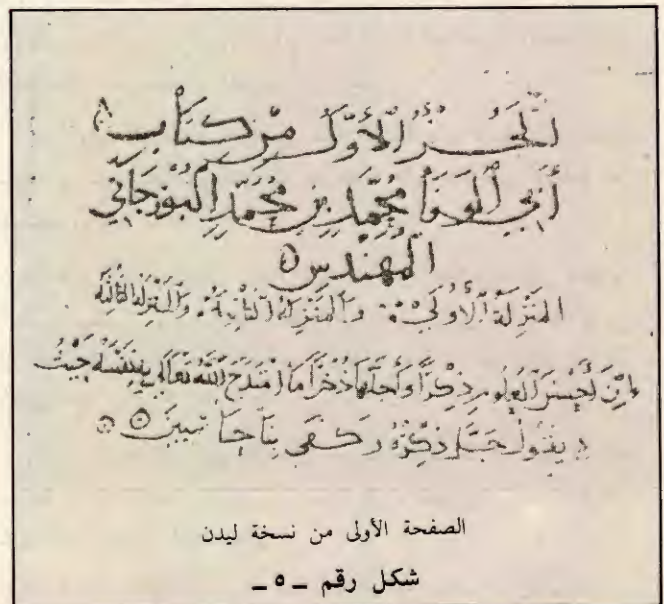 الجُزْءُ الأَوَّل مِن كتَابِ
أَبِي الوَفَا مُحَمَّد بن مُحَمَّدٍ البُوزجَانِي
المُهَندِس
المَنزِلَة الأُولَى ∴ وَالمَنزِلَة الثَانِيَة ∴ وَالمَنزِلَة الثَالِثَة
إِنَّ أَحْسَنَ العُلُومِ ذِكْرًا وَأَجَلَّهَا ذُخْرًا مَا امْتَدَحَ اللَّهُ تَعَالَى بِنَفْسِهِ حَيْثُ
يَقُولُ جَلَّ ذِكْرُهُ وَكَفَى بِنَا حَاسِبِينَ
الصفحة الأولى من نسخة ليدن
شكل رقم ــ ٥ ــ